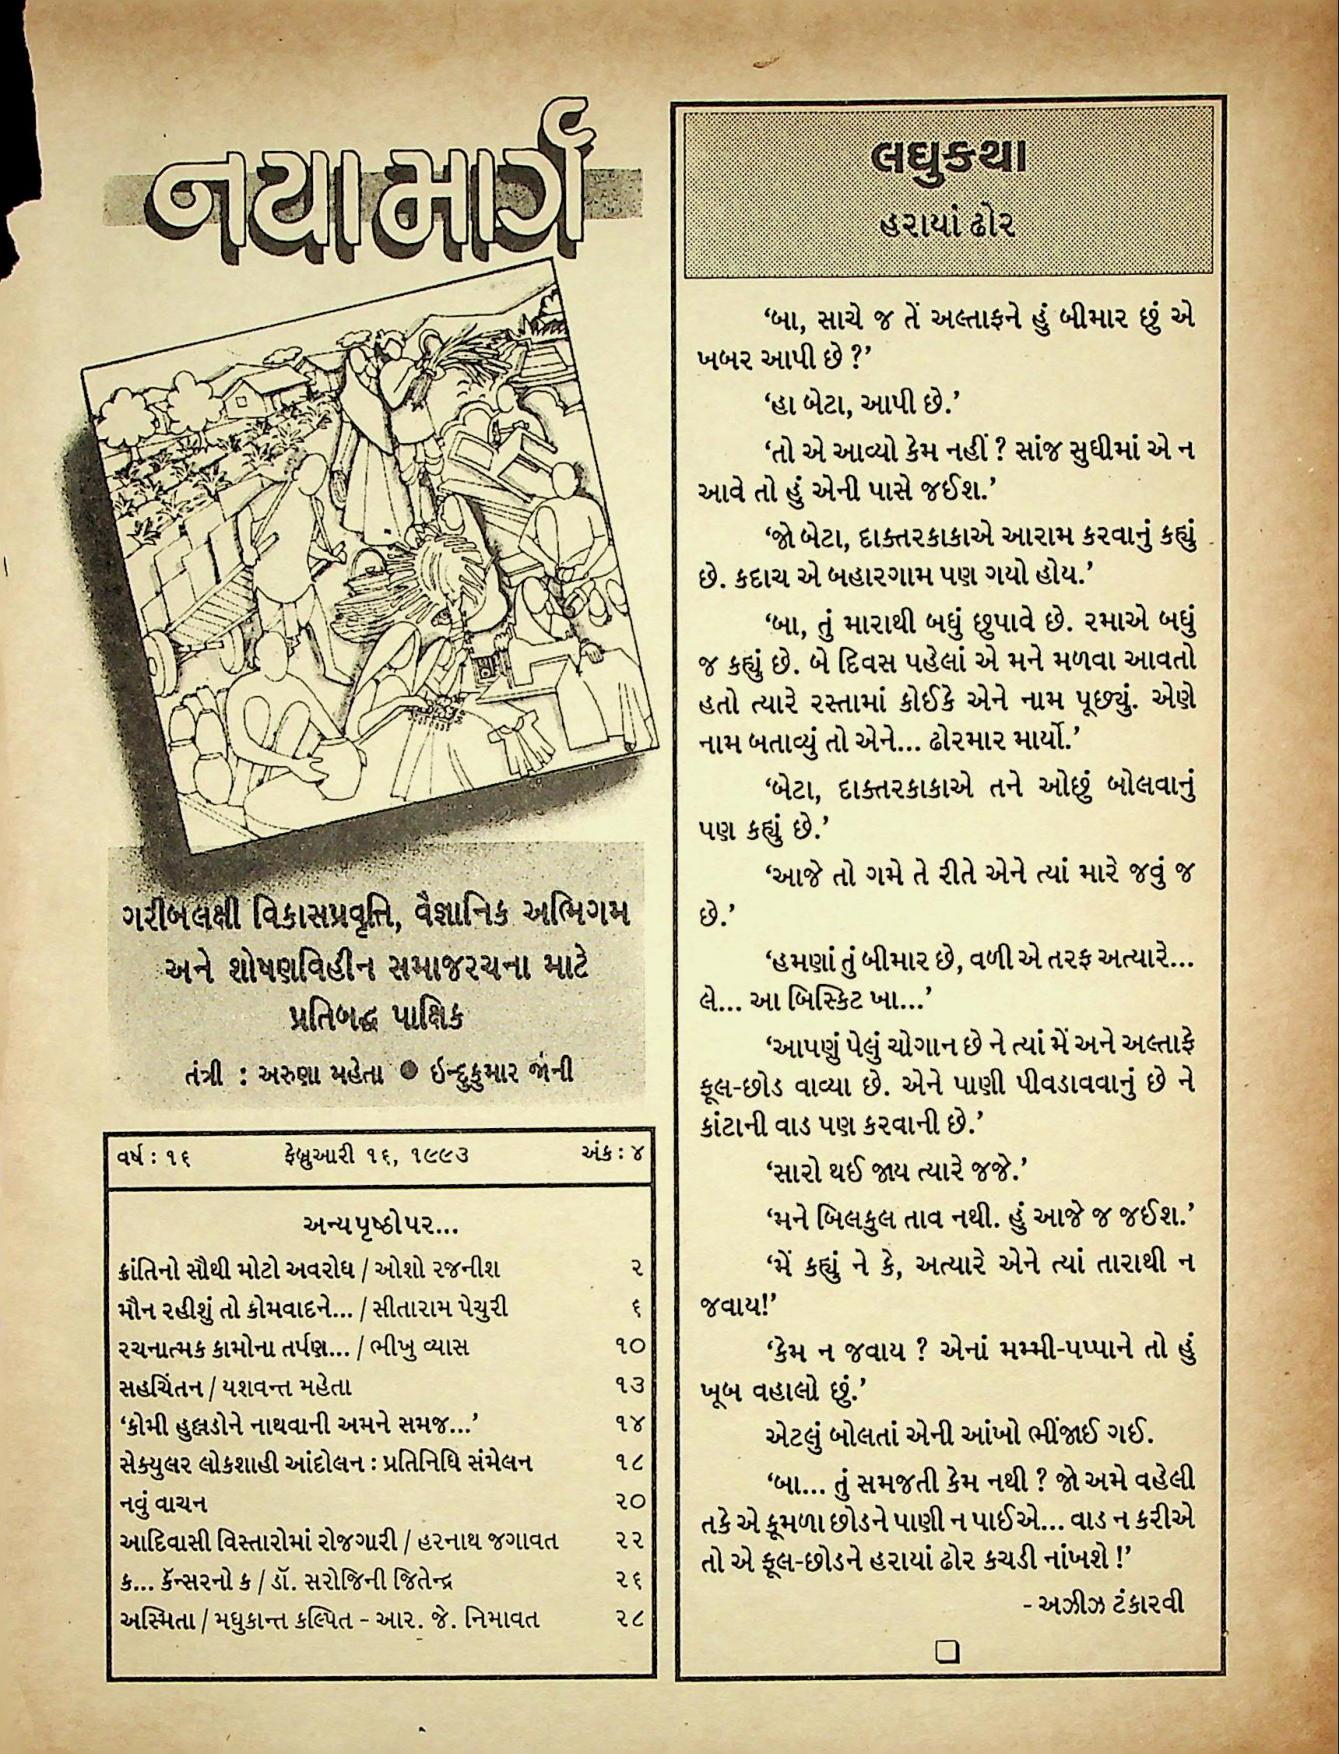 નયા માર્ગ
ગરીબલક્ષી વિકાસપ્રવૃત્તિ, વૈજ્ઞાનિક અભિગમ
અને શોષણવિહીન સમાજરચના માટે
પ્રતિબદ્ધ પાક્ષિક
તંત્રી : અરુણા મહેતા ● ઇન્દુકુમાર જાની
વર્ષ : ૧૬ ફેબ્રુઆરી ૧૬, ૧૯૯૩ અંક : ૪
અન્ય પૃષ્ઠો પર...
ક્રાંતિનો સૌથી મોટો અવરોધ / ઓશો રજનીશ ૨
મૌન રહીશું તો કોમવાદને... / સીતારામ યેચુરી ૬
રચનાત્મક કામોના તર્પણ... / ભીખુ વ્યાસ ૧૦
સહચિંતન / યશવન્ત મહેતા ૧૩
‘કોમી હુલ્લડોને નાથવાની અમને સમજ...’ ૧૪
સેક્યુલર લોકશાહી આંદોલન : પ્રતિનિધિ સંમેલન ૧૮
નવું વાચન ૨૦
આદિવાસી વિસ્તારોમાં રોજગારી / હરનાથ જગાવત ૨૨
ક... કૅન્સરનો ક / ડૉ. સરોજિની જિતેન્દ્ર ૨૬
અસ્મિતા / મધુકાન્ત કલ્પિત - આર. જે. નિમાવત ૨૮
લઘુકથા
હરાયાં ઢોર
‘બા, સાચે જ તેં અલ્તાફને હું બીમાર છું એ
ખબર આપી છે ?’
‘હા બેટા, આપી છે.’
‘તો એ આવ્યો કેમ નહીં ? સાંજ સુધીમાં એ ન
આવે તો હું એની પાસે જઈશ.’
‘જો બેટા, દાક્તરકાકાએ આરામ કરવાનું કહ્યું
છે. કદાચ એ બહારગામ પણ ગયો હોય.’
‘બા, તું મારાથી બધું છુપાવે છે. રમાએ બધું
જ કહ્યું છે. બે દિવસ પહેલાં એ મને મળવા આવતો
હતો ત્યારે રસ્તામાં કોઈકે એને નામ પૂછ્યું. એણે
નામ બતાવ્યું તો એને... ઢોરમાર માર્યો.’
‘બેટા, દાક્તરકાકાએ તને ઓછું બોલવાનું
પણ કહ્યું છે.’
‘આજે તો ગમે તે રીતે એને ત્યાં મારે જવું જ
છે.’
‘હમણાં તું બીમાર છે, વળી એ તરફ અત્યારે...
લે... આ બિસ્કિટ ખા...’
‘આપણું પેલું ચોગાન છે ને ત્યાં મેં અને અલ્તાફે
ફૂલ-છોડ વાવ્યા છે. એને પાણી પીવડાવવાનું છે ને
કાંટાની વાડ પણ કરવાની છે.’
‘સારો થઈ જાય ત્યારે જજે.’
‘મને બિલકુલ તાવ નથી. હું આજે જ જઈશ.’
‘મેં કહ્યું ને કે, અત્યારે એને ત્યાં તારાથી ન
જવાય!’
‘કેમ ન જવાય ? એનાં મમ્મી-પપ્પાને તો હું
ખૂબ વહાલો છું.’
એટલું બોલતાં એની આંખો ભીંજાઈ ગઈ.
‘બા... તું સમજતી કેમ નથી ? જો અમે વહેલી
તકે એ કૂમળા છોડને પાણી ન પાઈએ... વાડ ન કરીએ
તો એ ફૂલ-છોડને હરાયાં ઢોર કચડી નાંખશે !’
- અઝીઝ ટંકારવી